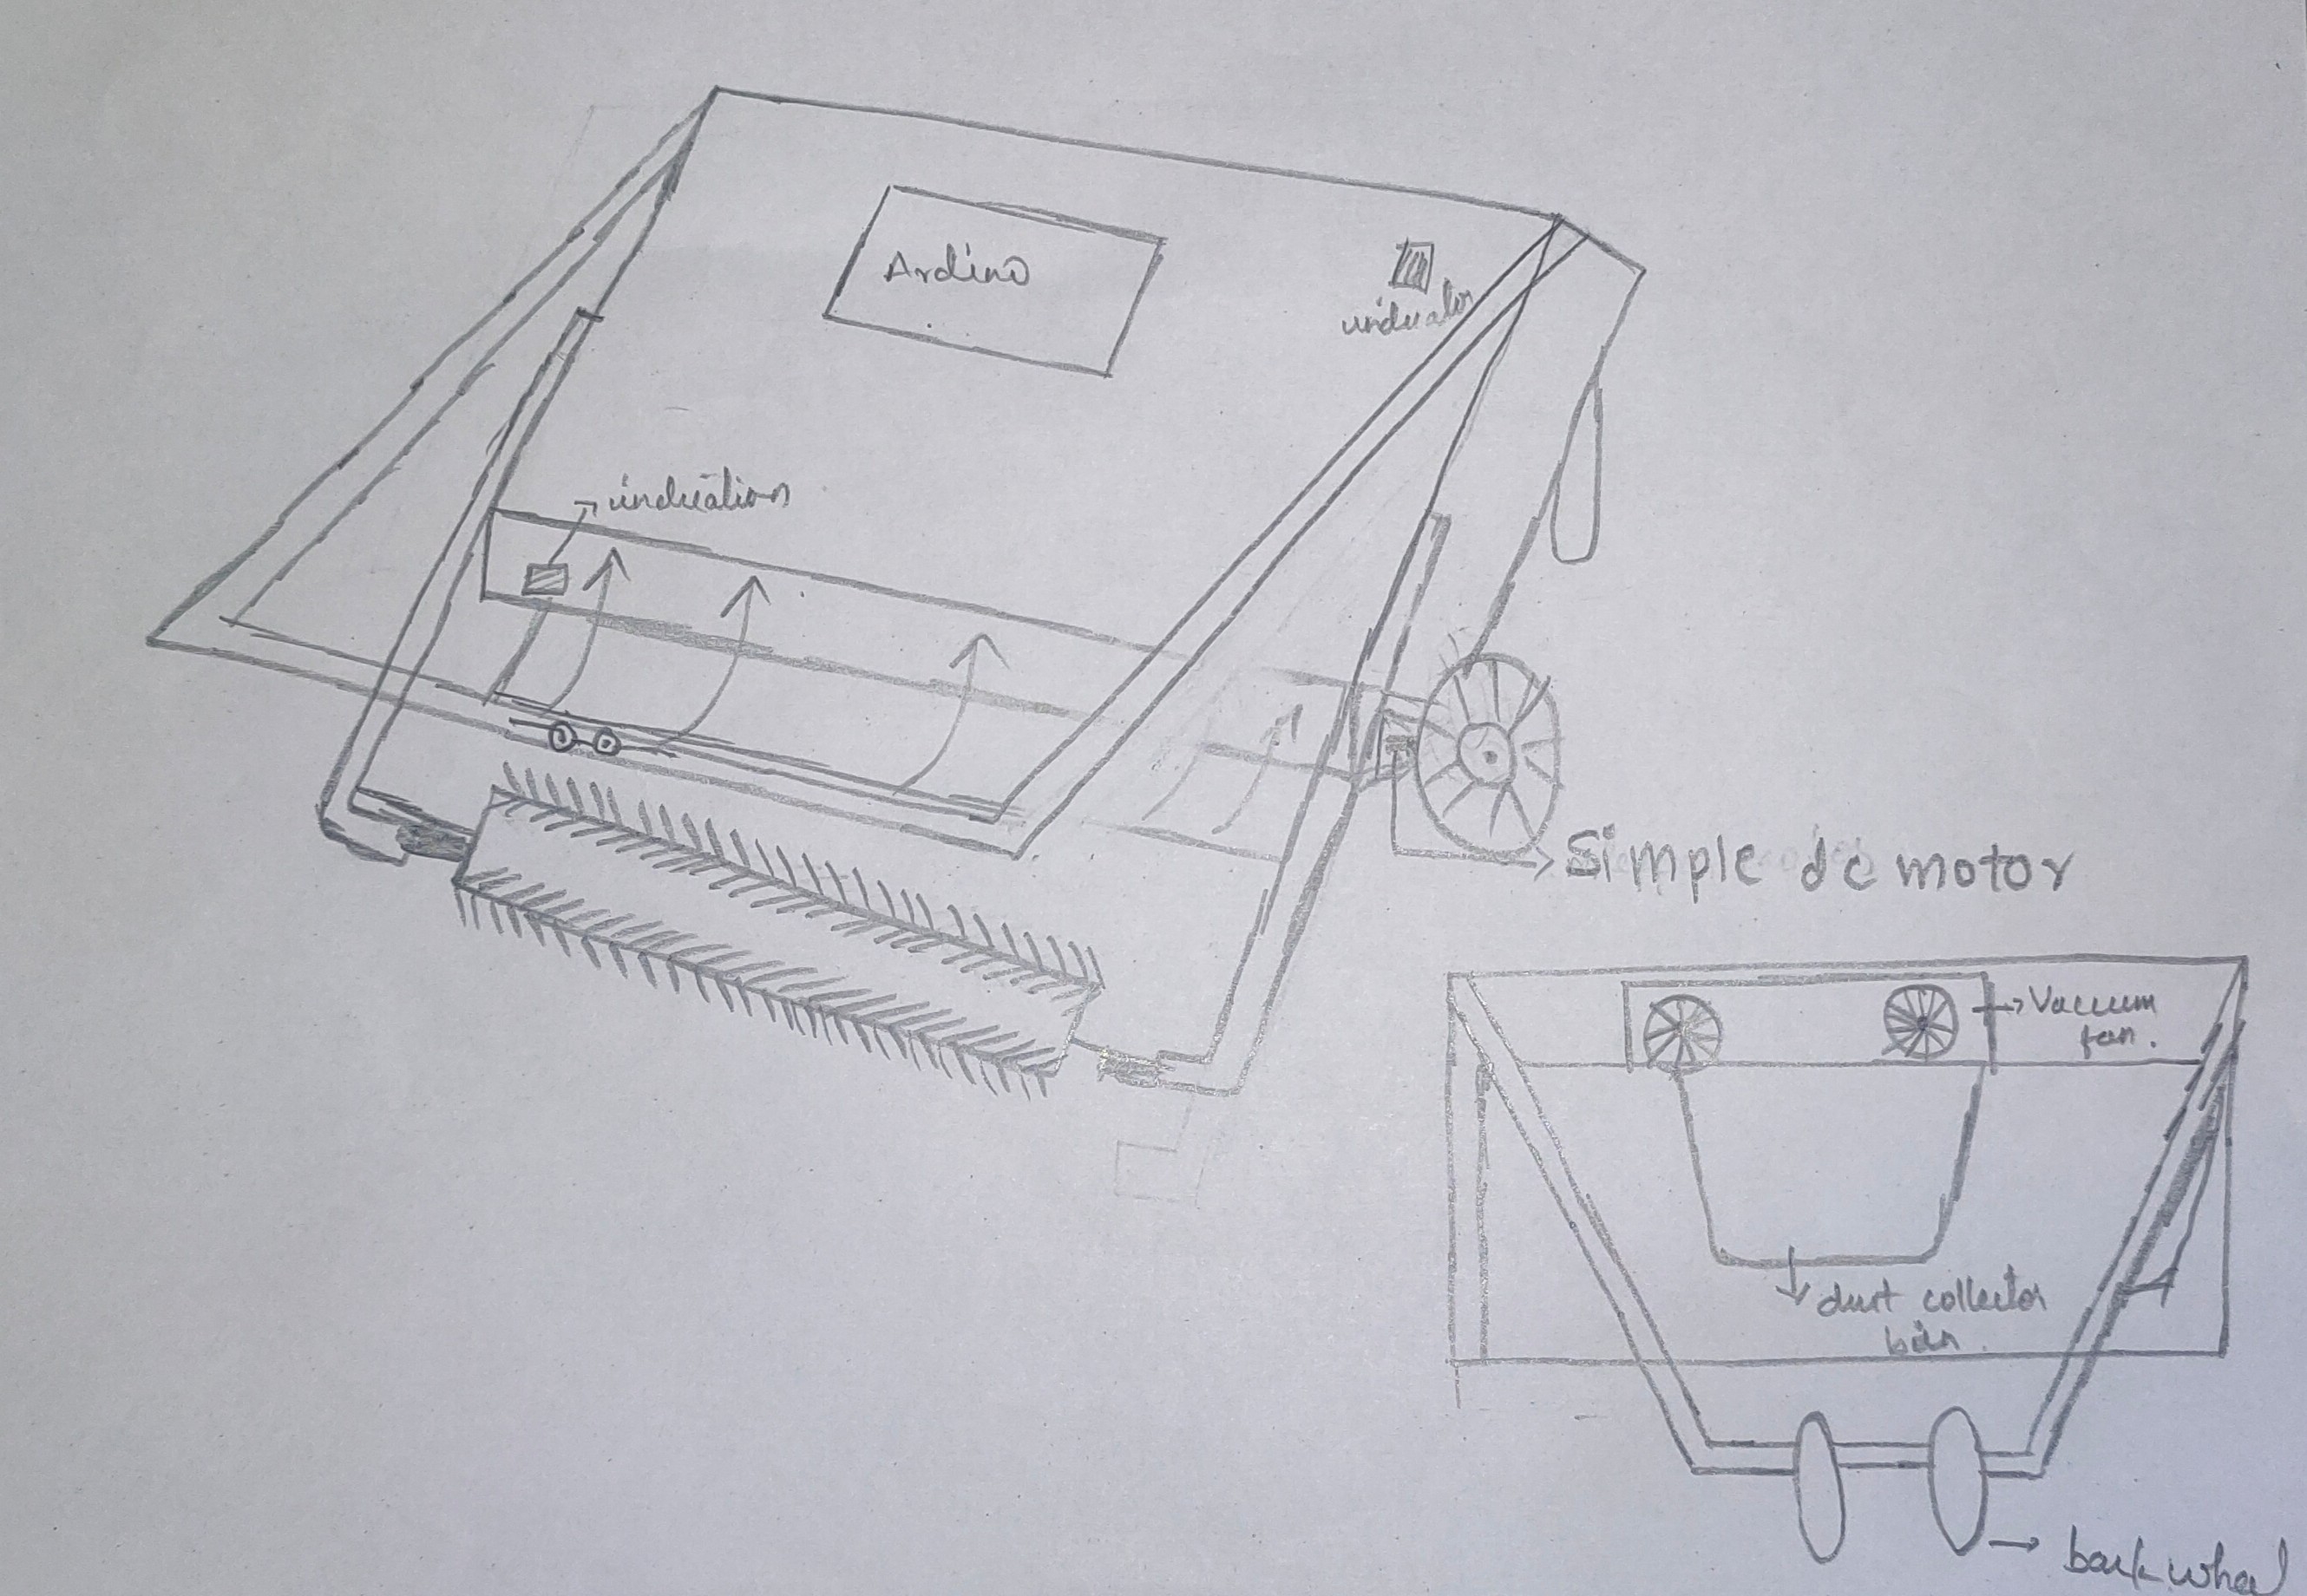 Ardino
indicator
indication
Simple dc motor
Vacuum
fan.
dust collector
bin.
back wheel